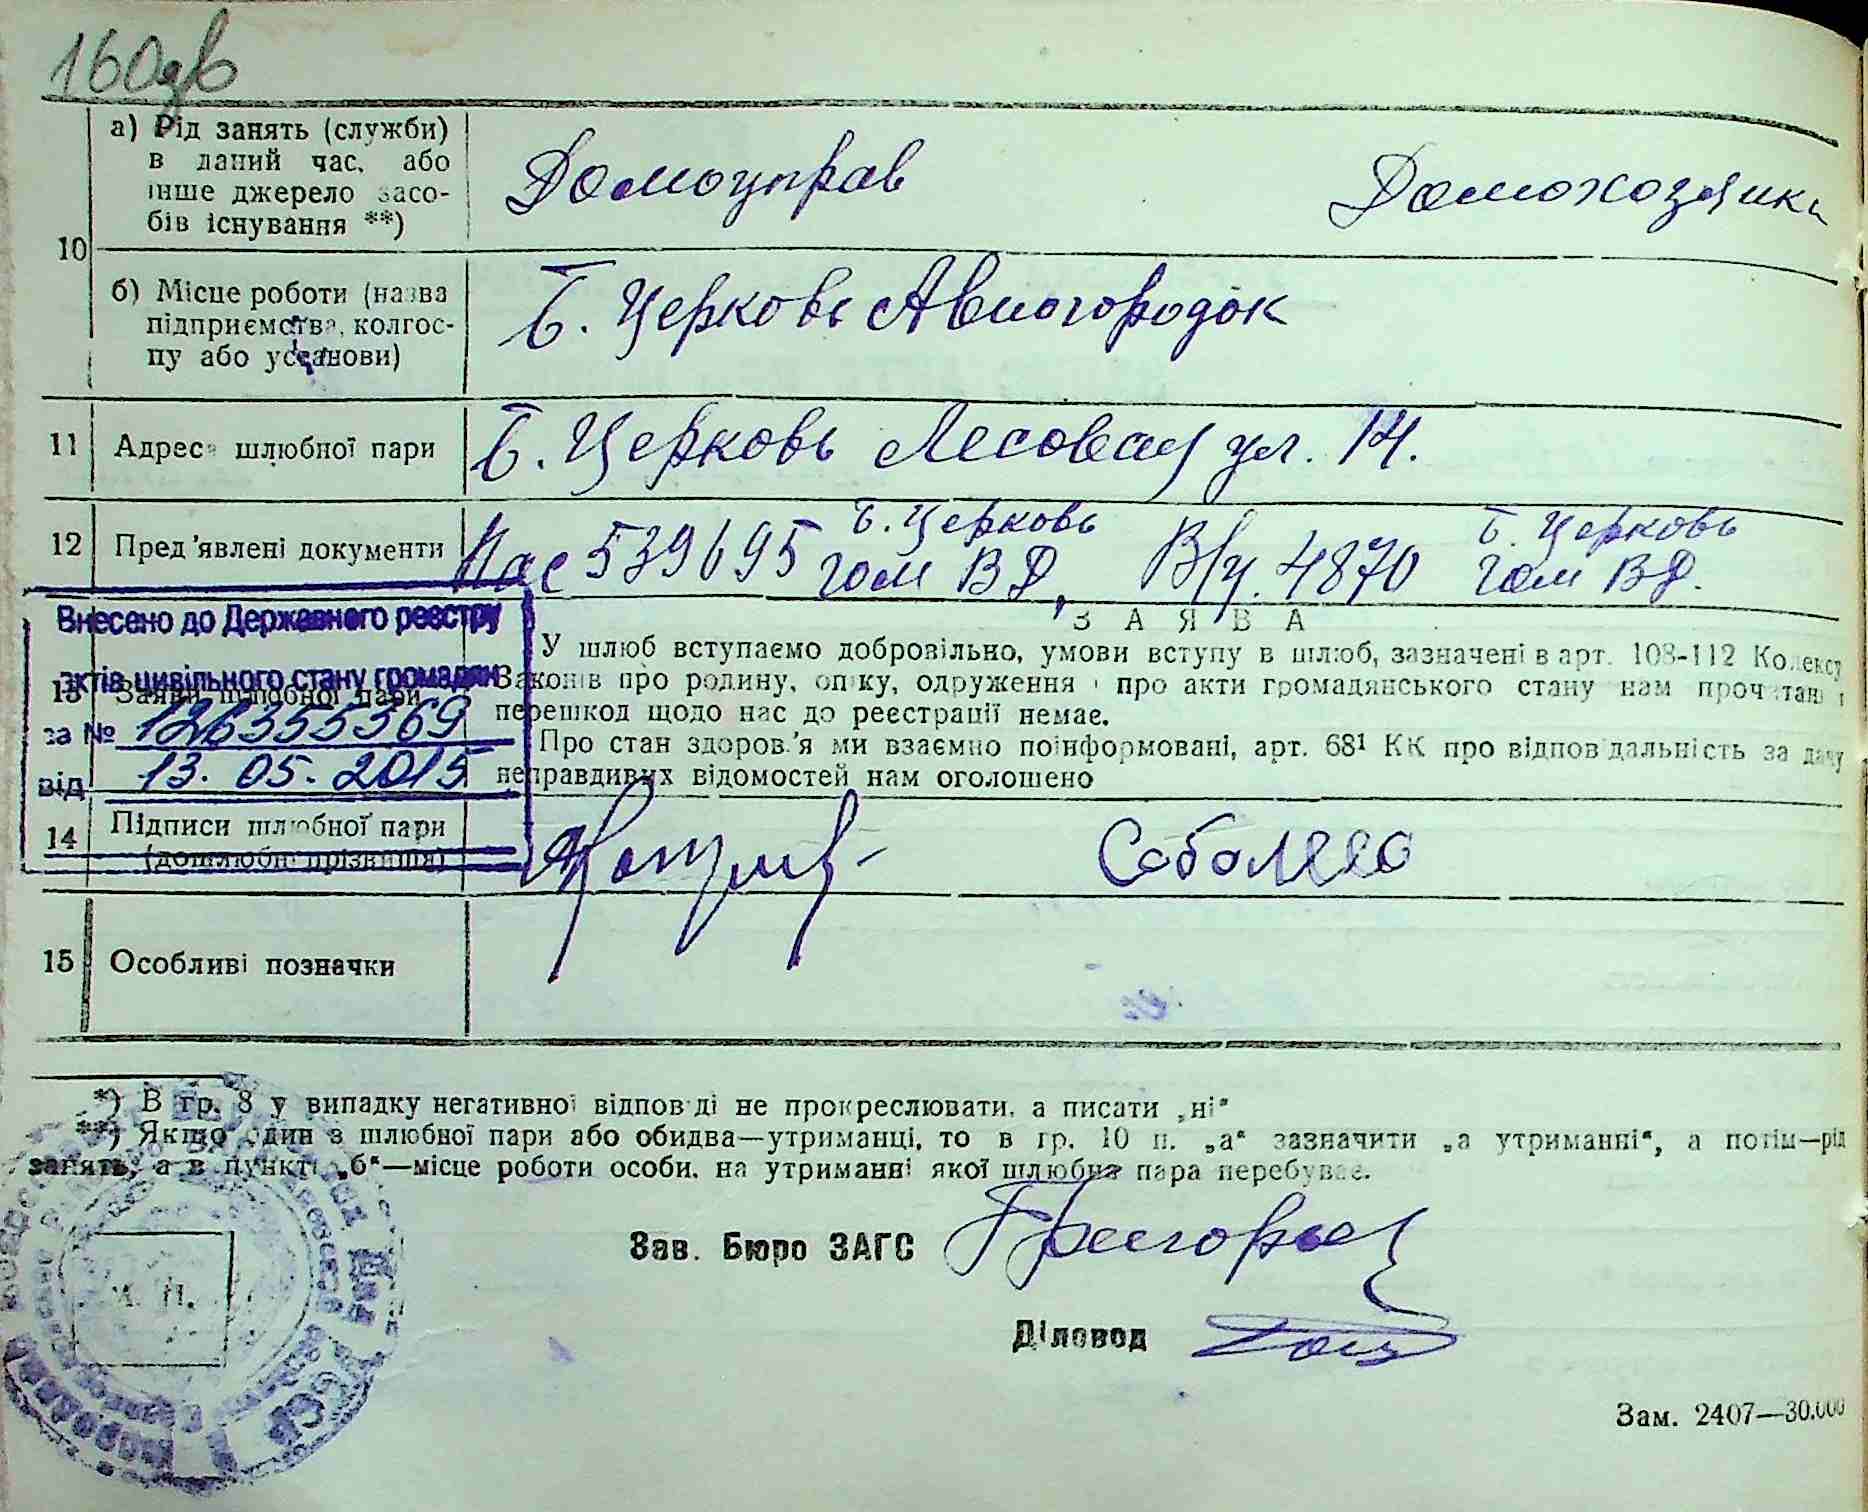 160дв
а) Рід занять (служби) в даний час, або інше джерело засобів існування **)
Домоуправ Домохозяйка
10
б) Місце роботи (назва підприємства, колгоспу або установи)
Б. Церковь Авиогородок
11 Адреса шлюбної пари Б. Церковь Лесовая ул. 14.
12 Пред'явлені документи Пас 539695 Б. Церковь гом ВД, В/у. 4870 Б. Церковь гом ВД.
Внесено до Державного реєстру
актів цивільного стану громадян
за № 126355369
від 13. 05. 2015
ЗАЯВА
13 Заяви шлюбної пари
У шлюб вступаємо добровільно, умови вступу в шлюб, зазначені в арт. 108-112 Кодексу
Законів про родину, опіку, одруження і про акти громадянського стану нам прочитані і
перешкод щодо нас до реєстрації немає.
Про стан здоров'я ми взаємно поінформовані, арт. 68¹ КК про відповідальність за дачу
неправдивих відомостей нам оголошено
14 Підписи шлюбної пари (дошлюбні прізвища)
15 Особливі позначки
*) В гр. 8 у випадку негативної відповіді не прокреслювати, а писати „ні“
**) Якщо один з шлюбної пари або обидва—утриманці, то в гр. 10 п. „а“ зазначити „на утриманні“, а потім—рід
занять, а в пункті „б“—місце роботи особи, на утриманні якої шлюбна пара перебуває.
Зав. Бюро ЗАГС
М. П.
Діловод
Зам. 2407—30.000